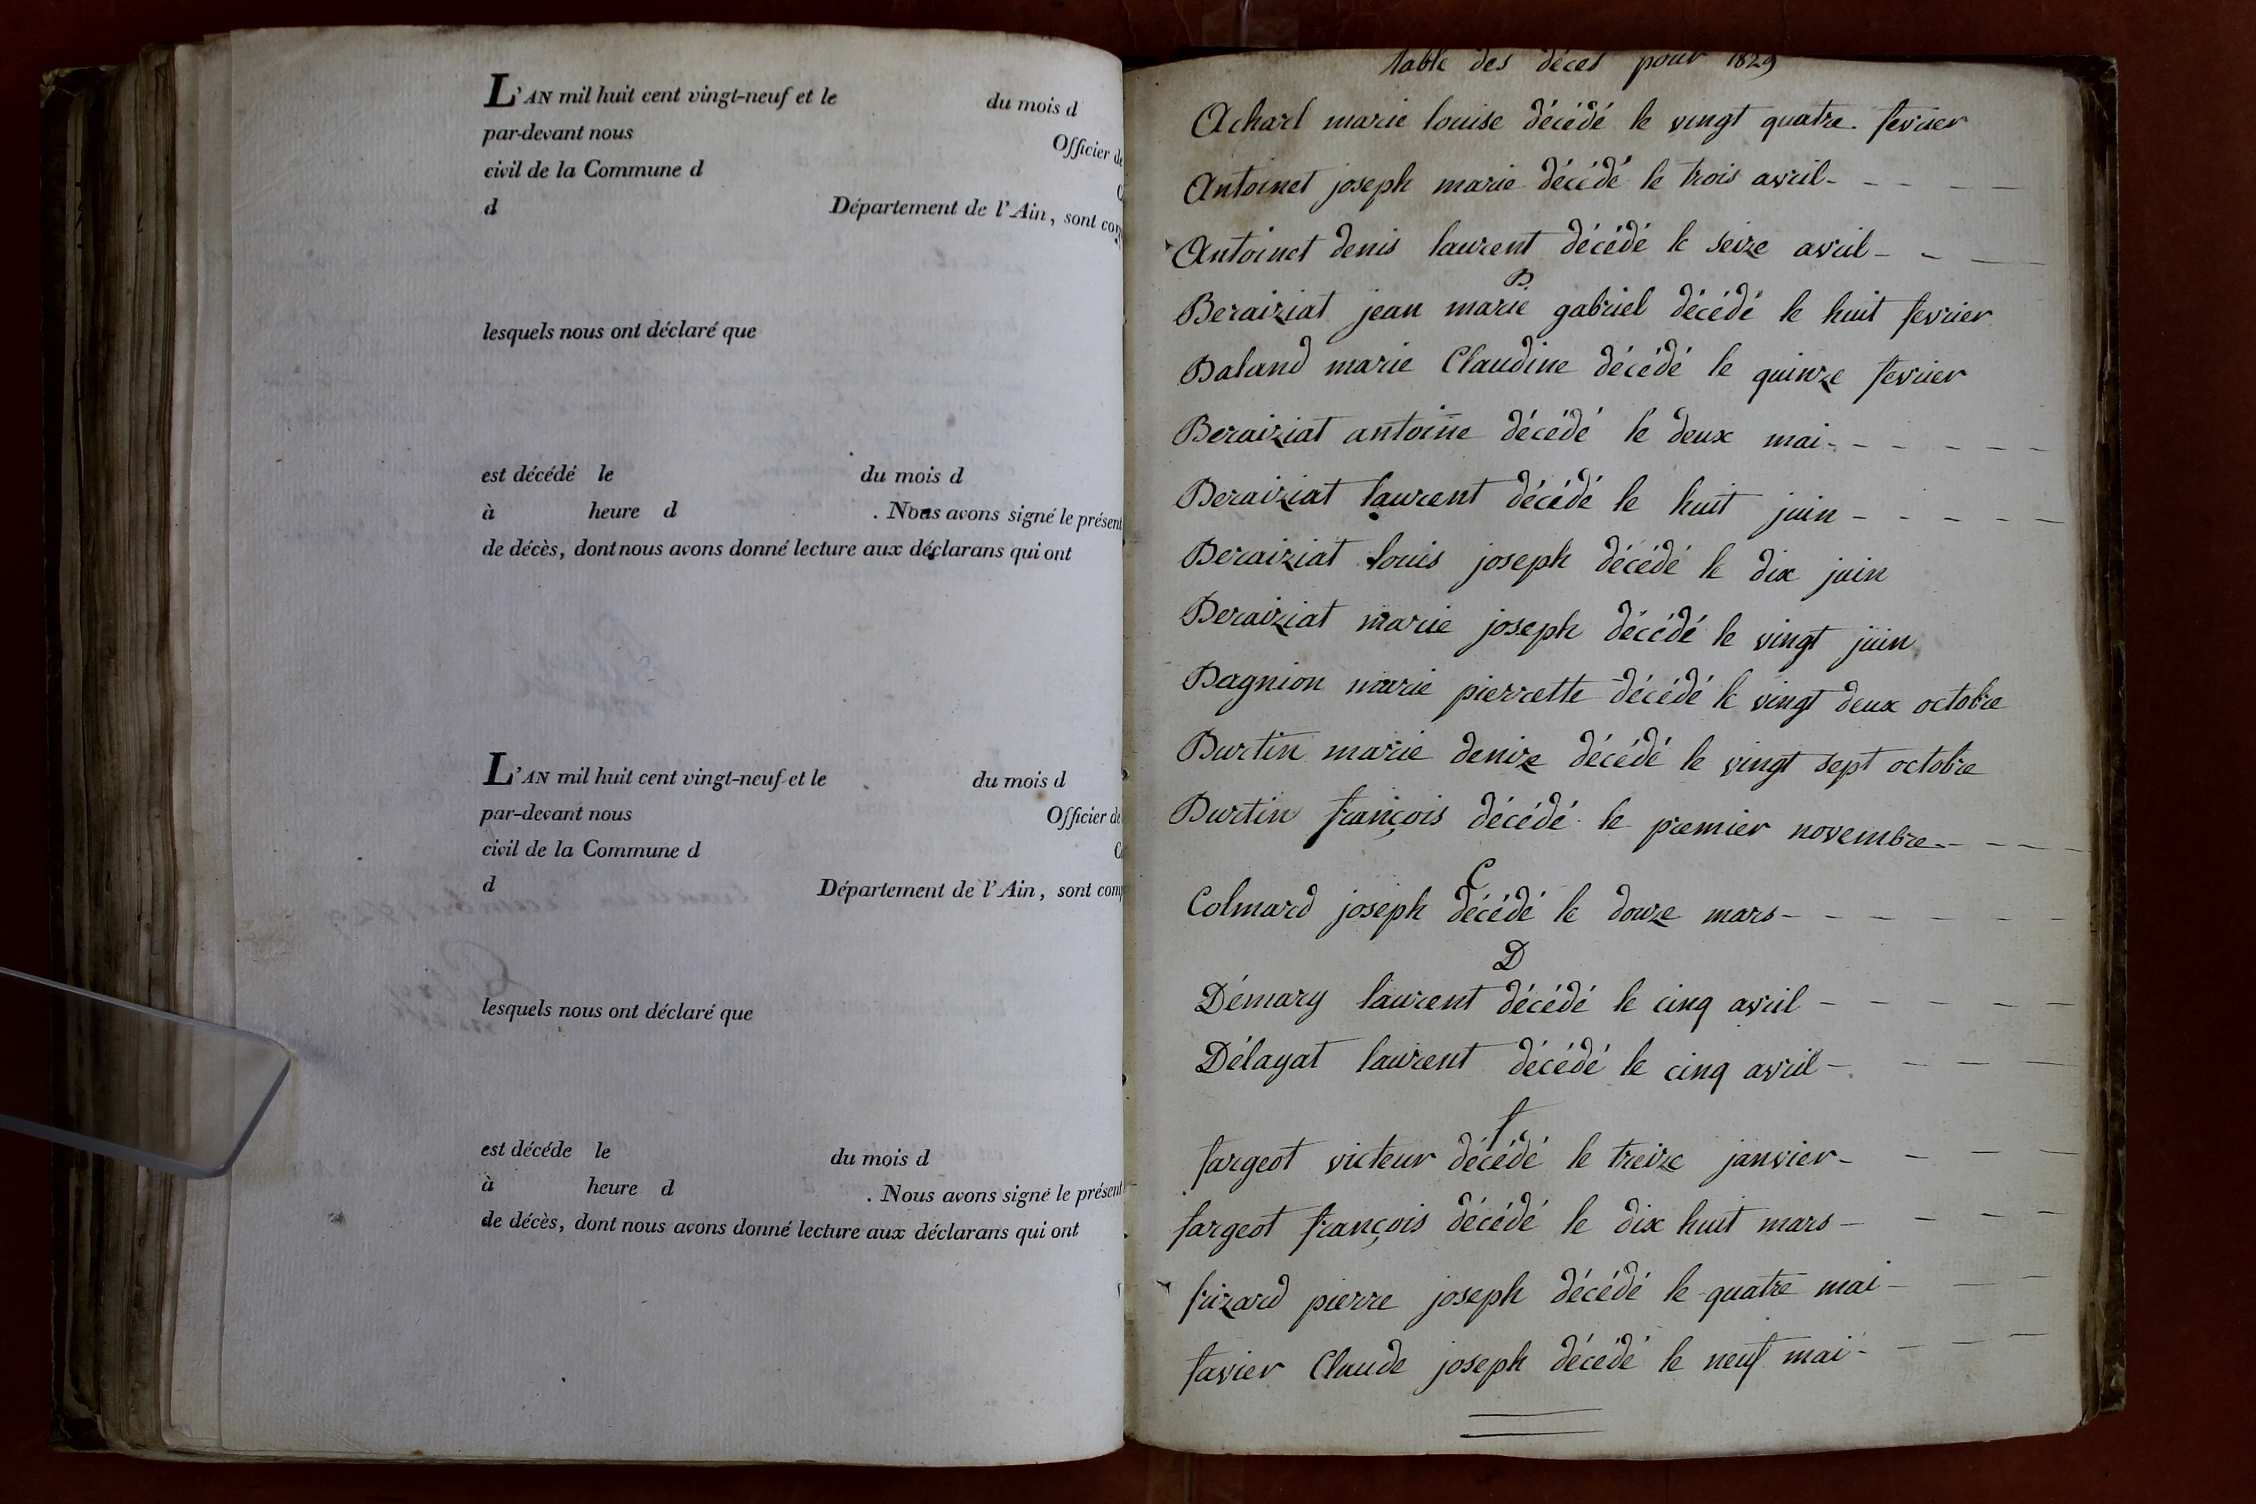 L'AN mil huit cent vingt-neuf et le du mois d
par-devant nous Officier de
civil de la Commune d
d Département de l'Ain, sont com
lesquels nous ont déclaré que
est décédé le du mois d
à heure d . Nous avons signé le présent
de décès, dont nous avons donné lecture aux déclarans qui ont
L'AN mil huit cent vingt-neuf et le du mois d
par-devant nous Officier de
civil de la Commune d
d Département de l'Ain, sont comp
lesquels nous ont déclaré que
est décéde le du mois d
à heure d . Nous avons signé le présent
de décès, dont nous avons donné lecture aux déclarans qui ont
table des décès pour 1829
Acharl marie louise décédé le vingt quatre fevrier
Antoinet joseph marie décédé le trois avril
Antoinet denis laurent décédé le seize avril
B
Beraiziat jean marie gabriel décédé le huit fevrier
Baland marie Claudine décédé le quinze fevrier
Beraiziat antoine décédé le deux mai
Beraiziat laurent décédé le huit juin
Beraiziat louis joseph décédé le dix juin
Beraiziat marie joseph décédé le vingt juin
Bagnion marie pierrette décédé le vingt deux octobre
Burtin marie denize décédé le vingt sept octobre
Burtin françois décédé le premier novembre
C
Colmard joseph décédé le douze mars
D
Démary laurent décédé le cinq avril
Délayat laurent décédé le cinq avril
f
fargeot victeur décédé le treize janvier
fargeot françois décédé le dix huit mars
frizard pierre joseph décédé le quatre mai
favier Claude joseph décédé le neuf mai